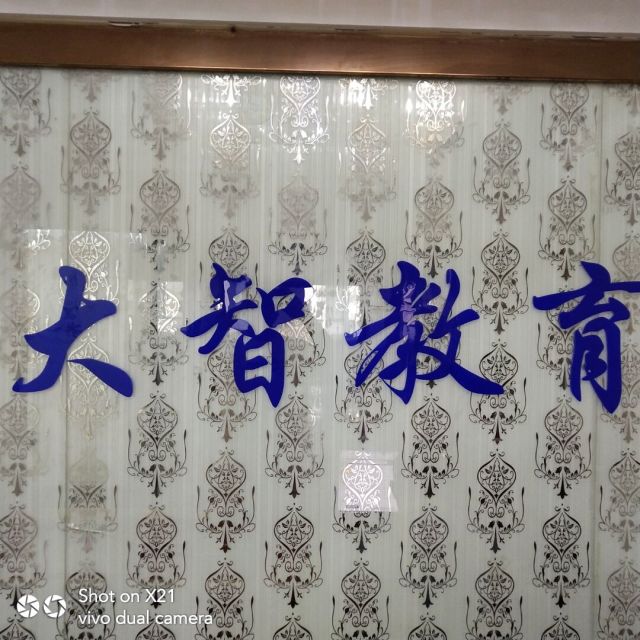 大智教育
Shot on X21
vivo dual camera